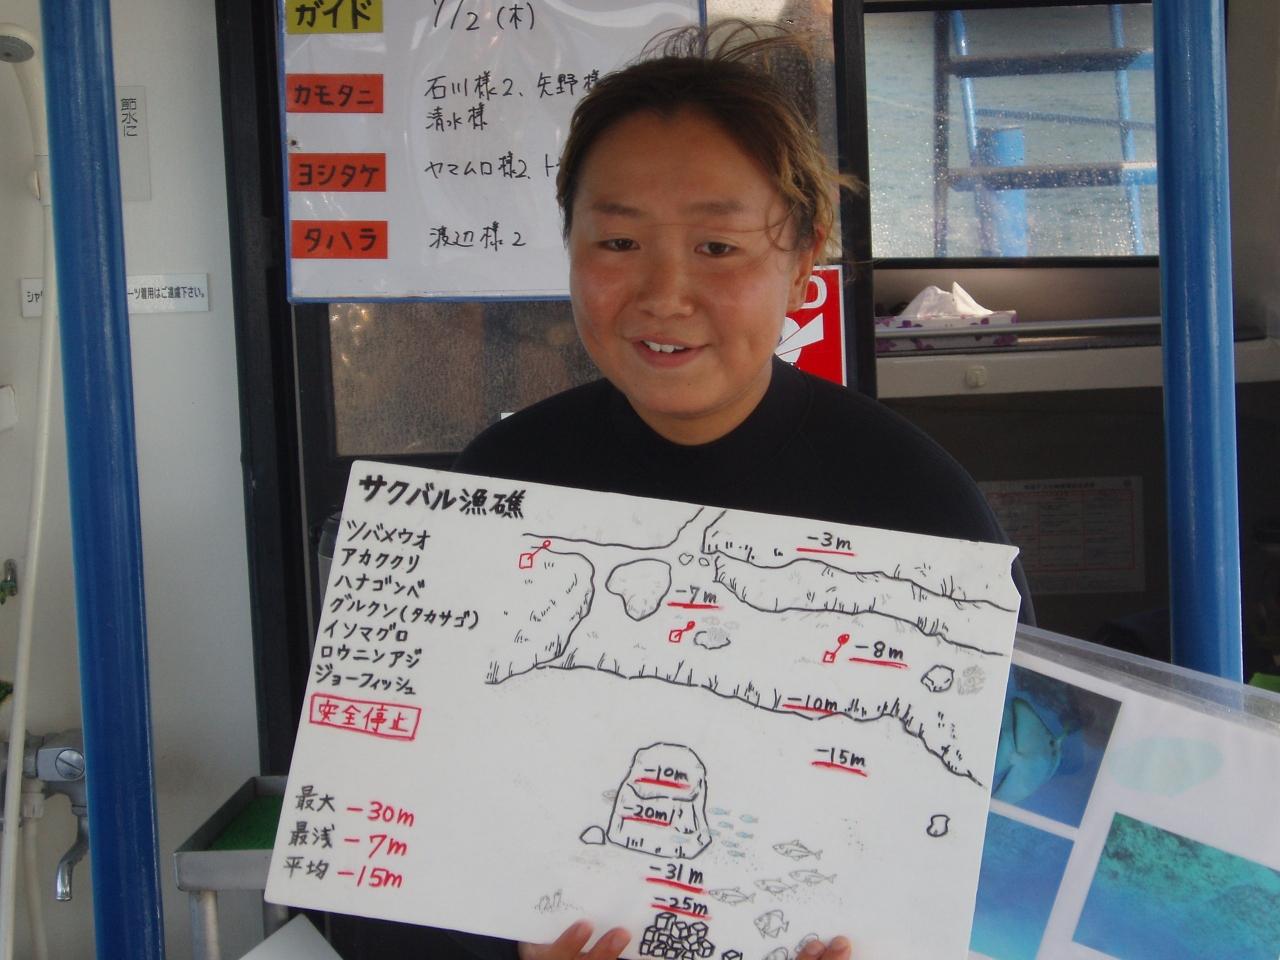 ガイド 7/2 (木)
カモタニ 石川様2、矢野様
清水様
ヨシタケ ヤマムロ様2、ト
タハラ 渡辺様2
節水に
シャ
ーツ着用はご遠慮下さい。
サクバル漁礁
ツバメウオ
アカククリ
ハナゴンベ
グルクン(タカサゴ)
イソマグロ
ロウニンアジ
ジョーフィッシュ
安全停止
最大 -30m
最浅 -7m
平均 -15m
-3m
-7m
-8m
-10m
-15m
-10m
-20m
-31m
-25m